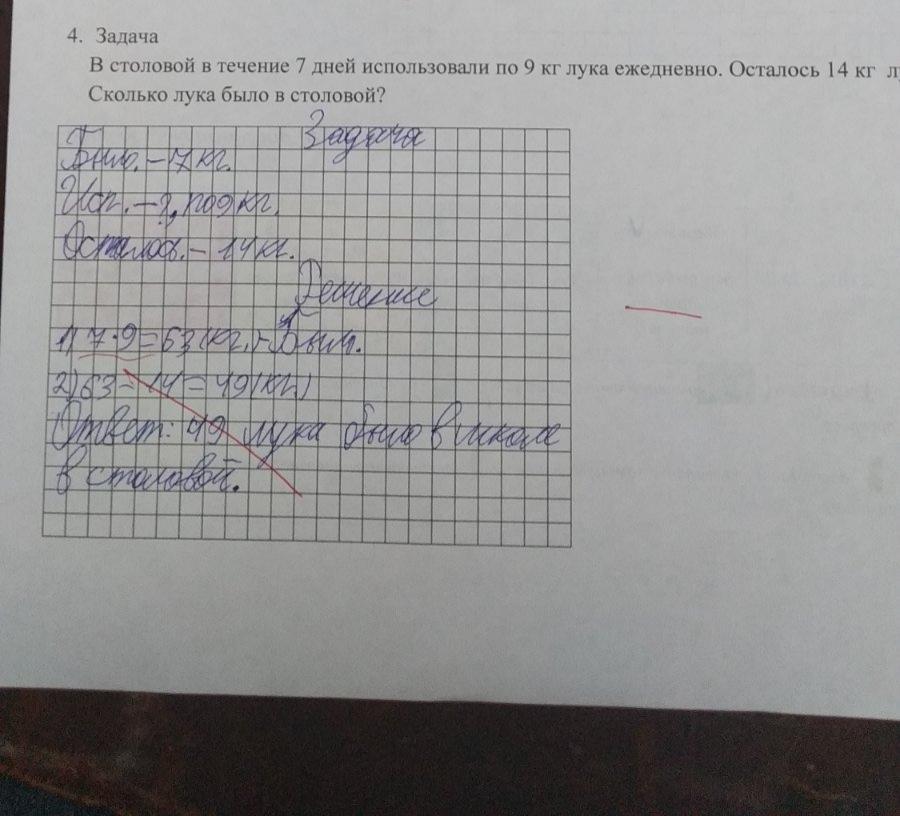 4. Задача
В столовой в течение 7 дней использовали по 9 кг лука ежедневно. Осталось 14 кг лу
Сколько лука было в столовой?
Задача
Было. – 7 кг.
Исп. – ?, по 9 кг.
Осталось. – 14 кг.
Решение
1) 7·9=63(кг.) – Было.
2) 63 – 14 = 49(кг.)
Ответ: 49 лука было в школе
в столовой.